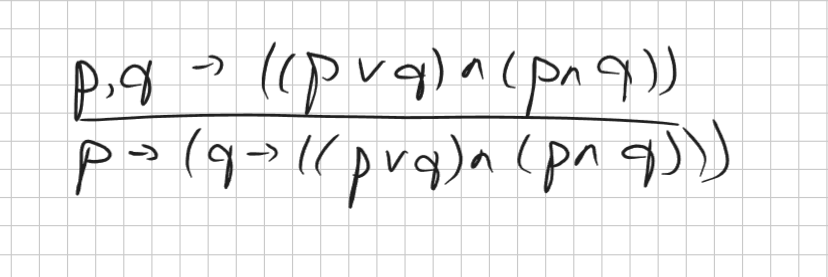 p,q → ((p ∨ q) ∧ (p ∧ q))
p → (q → ((p ∨ q) ∧ (p ∧ q)))